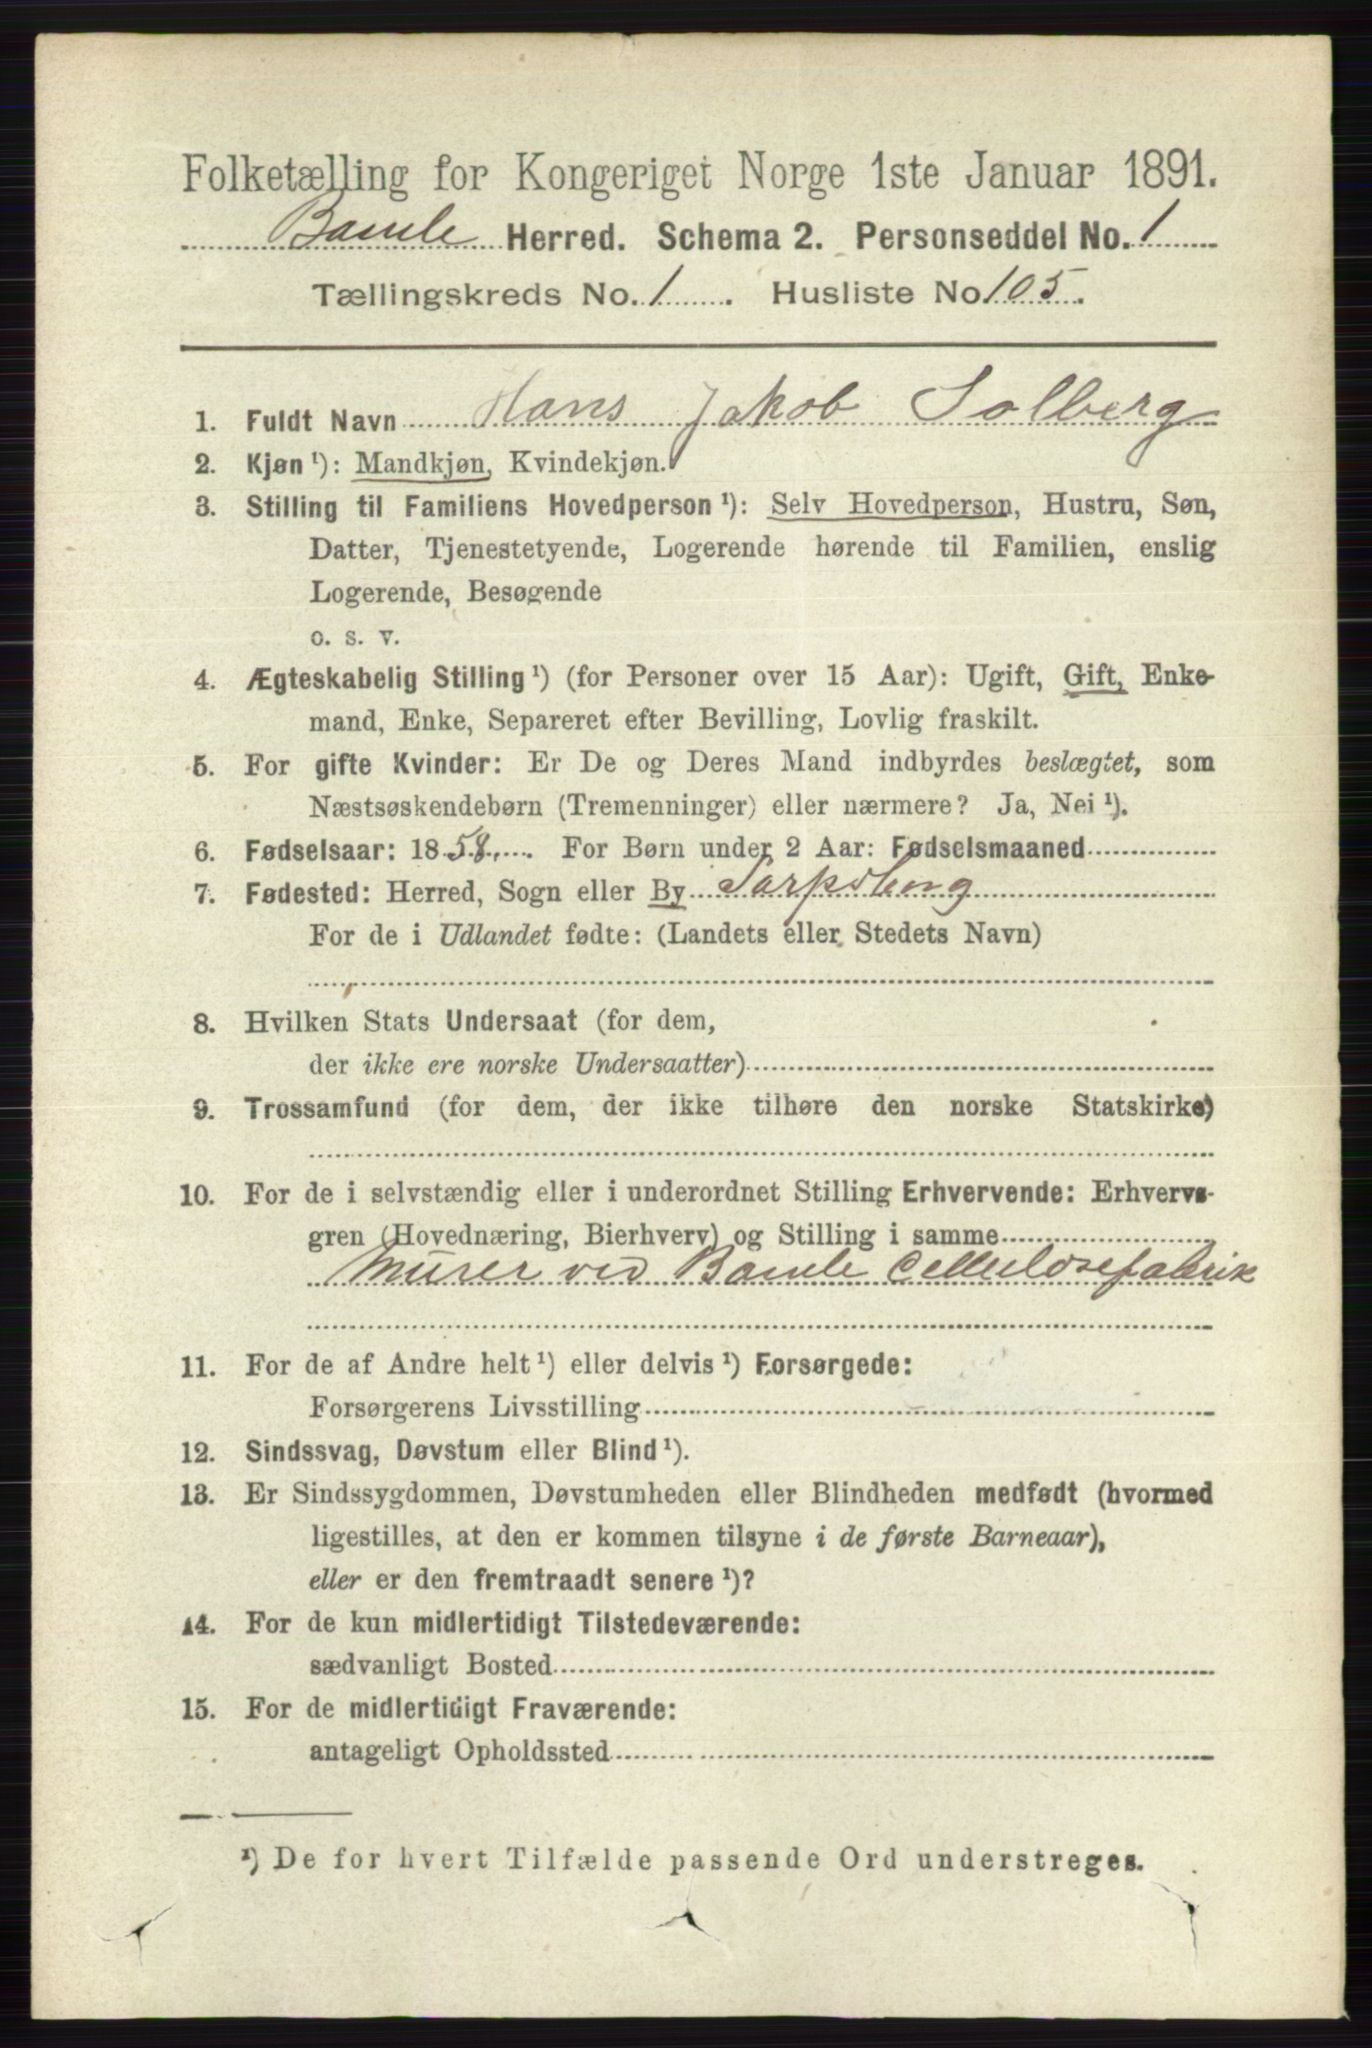 Folketælling for Kongeriget Norge 1ste Januar 1891.
Bamle Herred. Schema 2. Personseddel No. 1
Tællingskreds No. 1. Husliste No 105.
1. Fuldt Navn Hans Jakob Solberg
2. Kjøn ¹): Mandkjøn, Kvindekjøn.
3. Stilling til Familiens Hovedperson ¹): Selv Hovedperson, Hustru, Søn,
Datter, Tjenestetyende, Logerende hørende til Familien, enslig
Logerende, Besøgende
o. s. v.
4. Ægteskabelig Stilling ¹) (for Personer over 15 Aar): Ugift, Gift, Enke-
mand, Enke, Separeret efter Bevilling, Lovlig fraskilt.
5. For gifte Kvinder: Er De og Deres Mand indbyrdes beslægtet, som
Næstsøskendebørn (Tremenninger) eller nærmere? Ja, Nei ¹).
6. Fødselsaar: 1858. For Børn under 2 Aar: Fødselsmaaned
7. Fødested: Herred, Sogn eller By Sarpsborg
For de i Udlandet fødte: (Landets eller Stedets Navn)
8. Hvilken Stats Undersaat (for dem,
der ikke ere norske Undersaatter)
9. Trossamfund (for dem, der ikke tilhøre den norske Statskirke)
10. For de i selvstændig eller i underordnet Stilling Erhvervende: Erhvervs-
gren (Hovednæring, Bierhverv) og Stilling i samme
Murer ved Bamle Cellulosefabrik
11. For de af Andre helt ¹) eller delvis ¹) Forsørgede:
Forsørgerens Livsstilling
12. Sindssvag, Døvstum eller Blind ¹).
13. Er Sindssygdommen, Døvstumheden eller Blindheden medfødt (hvormed
ligestilles, at den er kommen tilsyne i de første Barneaar),
eller er den fremtraadt senere ¹)?
14. For de kun midlertidigt Tilstedeværende:
sædvanligt Bosted
15. For de midlertidigt Fraværende:
antageligt Opholdssted
¹) De for hvert Tilfælde passende Ord understreges.